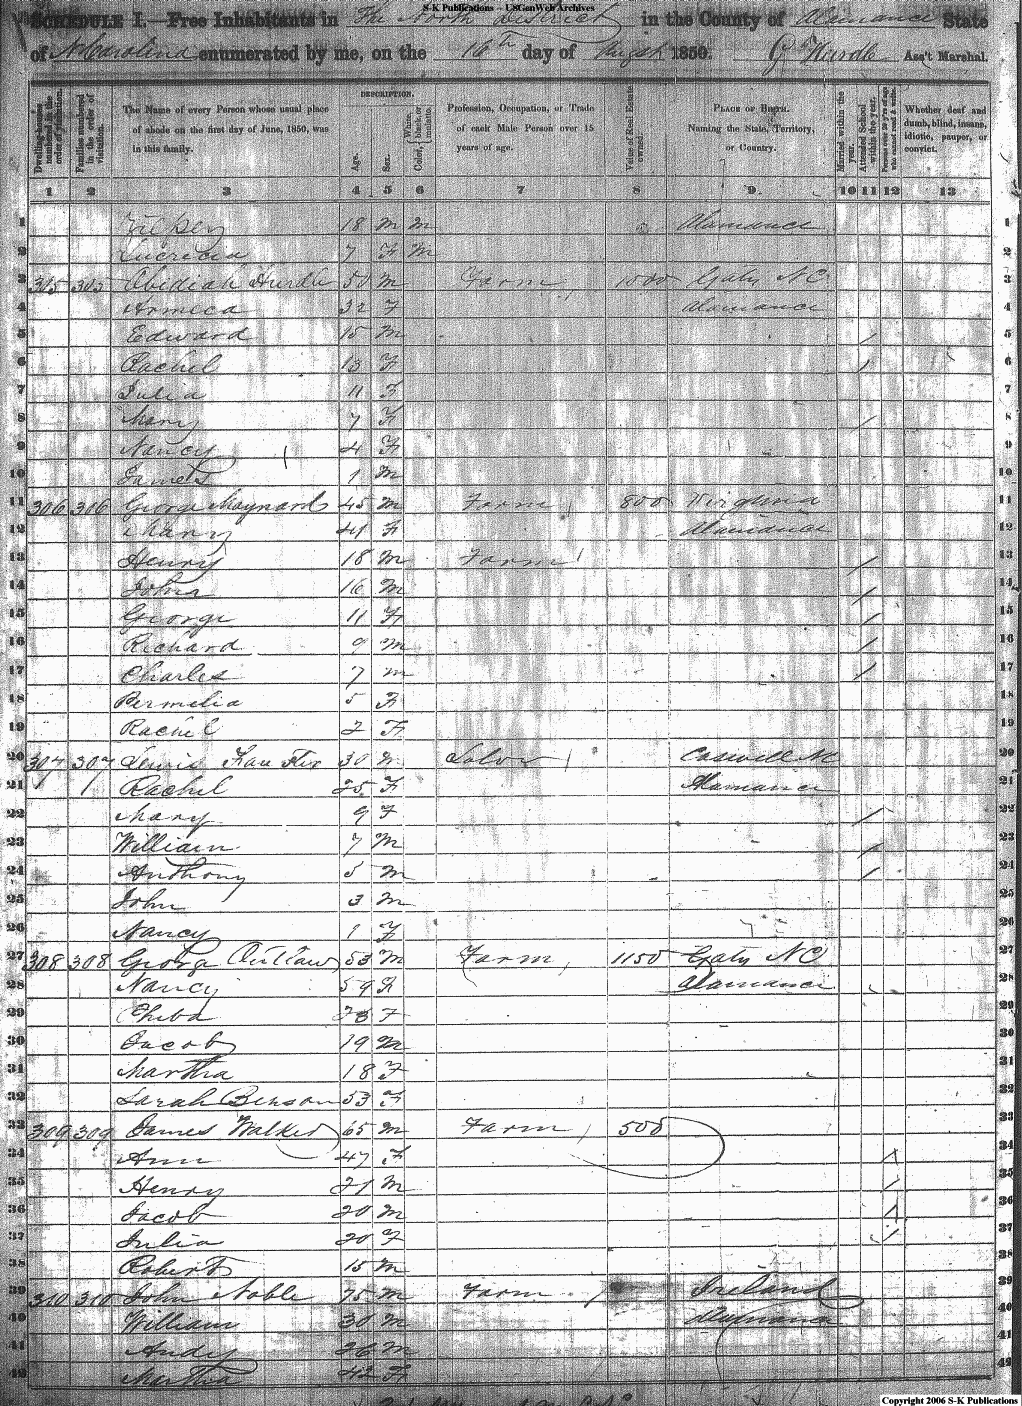 S-K Publications – USGenWeb Archives
SCHEDULE I.—Free Inhabitants in The North District in the County of Alamance State
of N. Carolina enumerated by me, on the 16th day of August 1850. G Hurdle Ass't Marshal.
Dwelling-houses numbered in the order of visitation.
Families numbered in the order of visitation.
The Name of every Person whose usual place of abode on the first day of June, 1850, was in this family.
DESCRIPTION.
Age.
Sex.
Color, White, black, or mulatto.
Profession, Occupation, or Trade of each Male Person over 15 years of age.
Value of Real Estate owned.
PLACE OF BIRTH. Naming the State, Territory, or Country.
Married within the year.
Attended School within the year.
Persons over 20 y'rs of age who cannot read & write.
Whether deaf and dumb, blind, insane, idiotic, pauper, or convict.
1 2 3 4 5 6 7 8 9 10 11 12 13
1 18 M M Alamance 1
2 Lucricia 7 F M 2
3 305 305 Obidiah Hurdle 50 M Farm 1500 Gates NC 3
4 Armeca 32 F Alamance 4
5 Edward 15 M / 5
6 Rachel 13 F / 6
7 Julia 11 F 7
8 Mary 7 F / 8
9 Nancy 4 F 9
10 James 1 M 10
11 306 306 George Maynard 45 M Farm 800 Virginia 11
12 Mary 41 F Alamance 12
13 Henry 18 M Farm / 13
14 John 16 M / 14
15 George 11 F / 15
16 Richard 9 M / 16
17 Charles 7 M / 17
18 Permelia 5 F 18
19 Rachel 2 F 19
20 307 307 Lewis 30 M Labor Caswell NC 20
21 Rachel 25 F Alamance 21
22 Mary 9 F / 22
23 William 7 M / 23
24 Anthony 5 M / 24
25 John 3 M 25
26 Nancy 1 F 26
27 308 308 George Outlaw 53 M Farm 1150 Gates NC 27
28 Nancy 59 F Alamance 28
29 23 F 29
30 Jacob 19 M 30
31 Martha 18 F 31
32 Sarah Benson 53 F 32
33 309 309 James Walker 65 M Farm 500 33
34 Ann 47 F / 34
35 Henry 21 M / 35
36 Jacob 20 M / 36
37 Julia 20 F / 37
38 Robert 15 M 38
39 310 310 John Noble 75 M Farm Ireland 39
40 William 30 M Alamance 40
41 Andy 26 M 41
42 Martha 42 F 42
Copyright 2006 S-K Publications